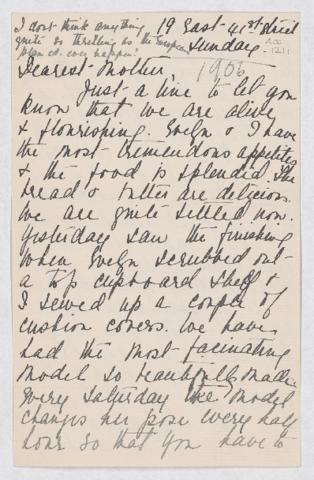 I don't think anything
quite so thrilling as the European
plan cd. ever happen!
19 East- 41st Street
Sunday.
Acc
1211
1905
Dearest Mother,
Just a line to let you
know that we are alive
& flourishing. Evelyn & I have
the most tremendous appetites
& the food is splendid. The
bread & butter are delicious.
We are quite settled now.
Yesterday saw the finishing
when Evelyn scrubbed out
a top cupboard shelf &
I sewed up a couple of
cushion covers. We have
had the most facinating
model so beautifully made.
Every Saturday the model
changes her pose every half
hour so that you have to